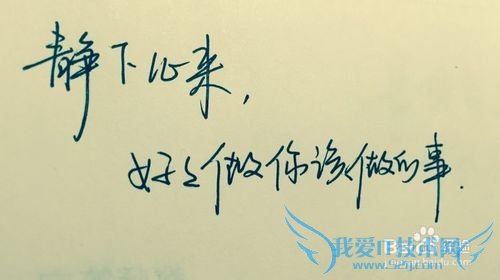 静下心来，
好好做你该做的事.
我爱IT技术网